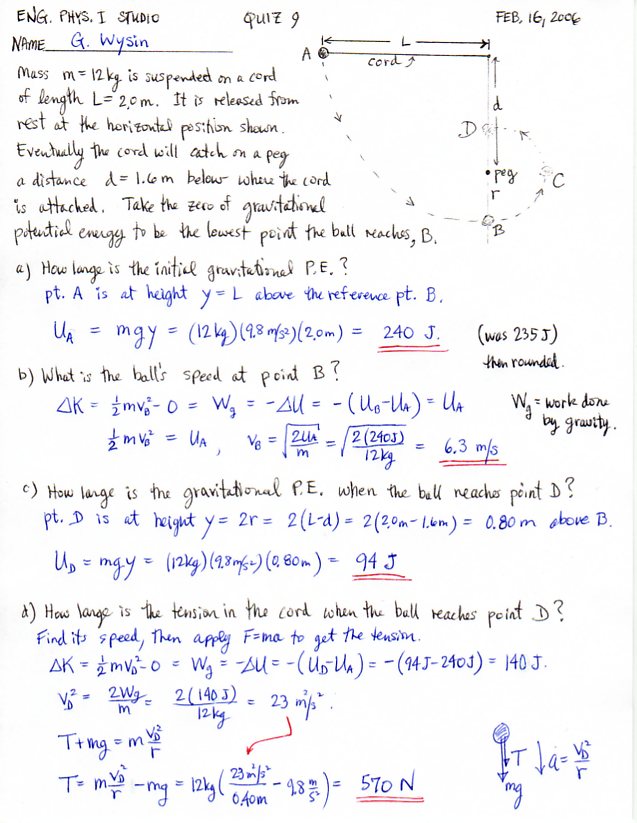 ENG. PHYS. I STUDIO QUIZ 9 FEB. 16, 2006
NAME G. Wysin
A L
cord
Mass m = 12 kg is suspended on a cord
of length L = 2.0 m. It is released from
rest at the horizontal position shown.
Eventually the cord will catch on a peg
a distance d = 1.6 m below where the cord
is attached. Take the zero of gravitational
potential energy to be the lowest point the ball reaches, B.
d
D
peg
r
C
B
a) How large is the initial gravitational P.E.?
pt. A is at height y = L above the reference pt. B.
U_A = mgy = (12 kg)(9.8 m/s²)(2.0m) = 240 J. (was 235 J)
then rounded.
b) What is the ball's speed at point B?
ΔK = ½mv_B² - 0 = W_g = -ΔU = -(U_B - U_A) = U_A W_g = work done
by gravity.
½mv_B² = U_A , v_B = √(2U_A/m) = √(2(240J)/12kg) = 6.3 m/s
c) How large is the gravitational P.E. when the ball reaches point D?
pt. D is at height y = 2r = 2(L-d) = 2(2.0m - 1.6m) = 0.80 m above B.
U_D = mgy = (12kg)(9.8m/s²)(0.80m) = 94 J
d) How large is the tension in the cord when the ball reaches point D?
Find its speed, then apply F=ma to get the tension.
ΔK = ½mv_D² - 0 = W_g = -ΔU = -(U_D - U_A) = -(94J - 240J) = 140 J.
v_D² = 2W_g/m = 2(140 J)/12kg = 23 m²/s².
T + mg = m v_D²/r
T = m v_D²/r - mg = 12kg(23 m²/s²/0.40m - 9.8 m/s²) = 570 N
T a = v_D²/r
mg